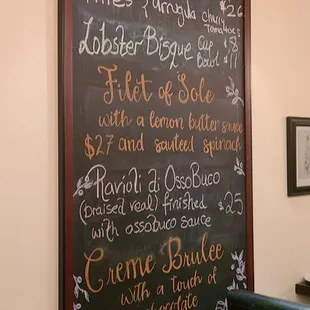 Arugula cherry $26
tomatoes
Lobster Bisque Cup $8
Bowl $11
Filet of Sole
with a lemon butter sauce
$27 and sauteed spinach
Ravioli di OssoBuco
(braised veal) finished $25
with ossobuco sauce
Creme Brulee
with a touch of
chocolate